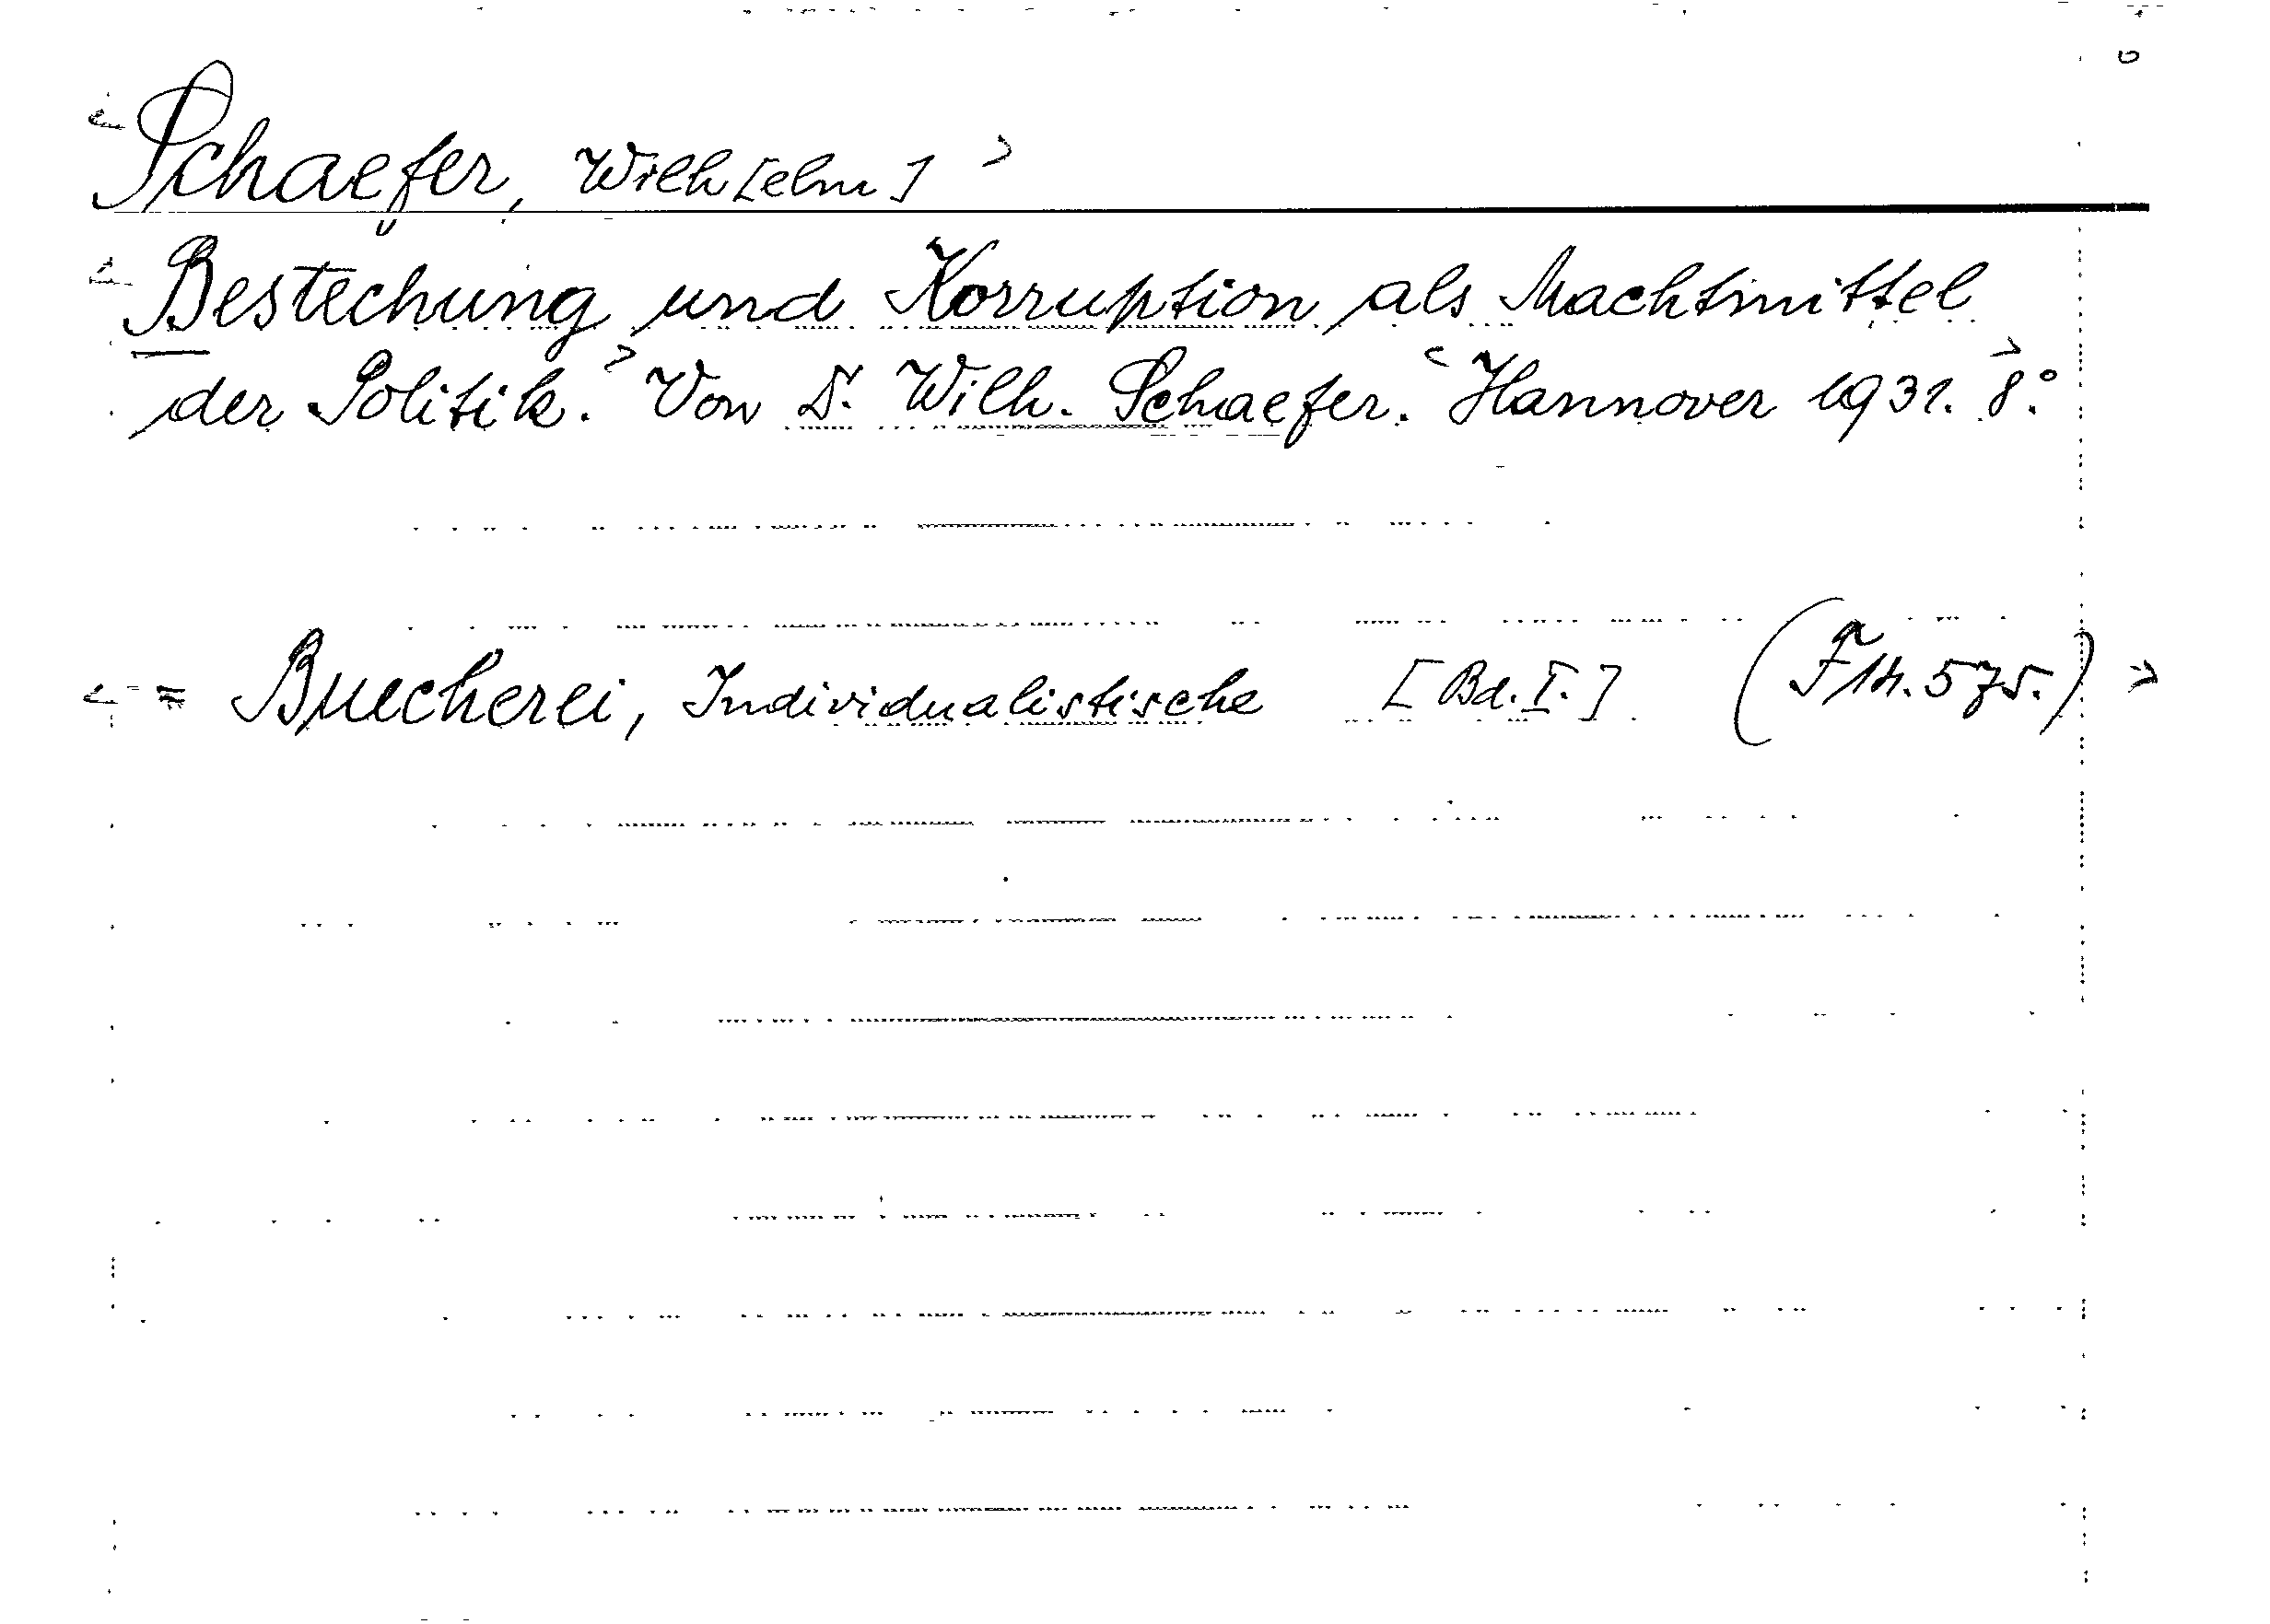 Schaefer, Wilh[elm]
Bestechung und Korruption als Machtmittel
der Politik. Von D. Wilh. Schaefer. Hannover 1931. 8°
= Buecherei, Individualistische [Bd. I.] (F 14. 575.)